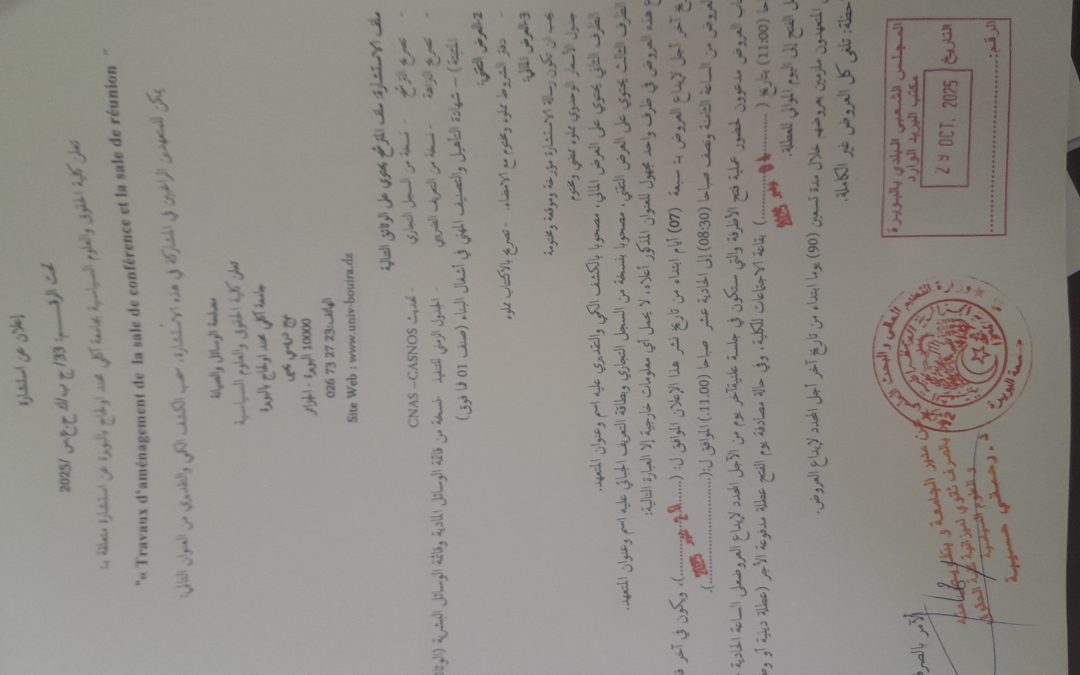 إعلان عن استشارة
تحت الرقم 33/ ج ب/ك ح ع س /2025
تعلن كلية الحقوق والعلوم السياسية بجامعة آكلي محند أولحاج بالبويرة عن استشارة متعلقة بـ:
"« Travaux d'aménagement de la sale de conférence et la sale de réunion "
يمكن للمتعهدين الراغبين في المشاركة في هذه الاستشارة، حسب الكشف الكمي والتقديري من العنوان التالي:
تعلن كلية الحقوق والعلوم السياسية
مصلحة الوسائل والصيانة
جامعة آكلي محند أولحاج البويرة
نهج دريسي يحي
10000 البويرة - الجزائر
الهاتف: 026 73 27 23
Site Web : www.univ-bouira.dz
ملف الاستشارة: ملف الترشح يحتوي على الوثائق التالية
- تصريح الترشح - نسخة من السجل التجاري - تحديث CNAS –CASNOS
- تصريح النزاهة - نسخة من التعريف الضريبي - الجدول الزمني للتنفيذ نسخة من قائمة الوسائل المادية وقائمة الوسائل البشرية (الوثائق
المثبتة) – شهادة التأهيل والتصنيف المهني في أشغال البناء (صنف 01 فما فوق)
2-العرض التقني:
- دفتر الشروط مملوء ومختوم مع الامضاء. - تصريح بالاكتتاب مملوء
3-العرض المالي:
يجب ان تكون رسالة الاستشارة مؤرخة وموقعة ومختومة
جدول الأسعار الوحدوي مملوء ممضي ومختوم
الظرف الثاني يحتوي على العرض المالي، مصحوبا بالكشف الكمي والتقديري عليه اسم وعنوان المتعهد.
الظرف الثالث يحتوي على العرض التقني، مصحوبا بنسخة من السجل التجاري وبطاقة التعريف الجبائي عليه اسم وعنوان المتعهد.
هذه العروض في ظرف واحد مجهول للعنوان المذكور أعلاه، لا يحمل أي معلومات خارجية إلا العبارة التالية:
آخر أجل لايداع العروض بـ سبعة (07) أيام ابتداء من تاريخ نشر هذا الاعلان الموافق ل: (
2025
)، ويكون في آخر
العروض من الساعة الثامنة ونصف صباحا (08:30) إلى الحادية عشر صباحا (11:00) الموافق ل:(
).
العروض مدعوون لحضور عملية فتح الأظرفة والتي ستكون في جلسة علنية آخر يوم من الأجل المحدد لإيداع العروض على الساعة الحادية
(11:00) بتاريخ (
2025
) بقاعة الاجتماعات للكلية، وفي حالة مصادفة يوم الفتح عطلة مدفوعة الأجر (عطلة دينية أو
الفتح إلى اليوم الموالي للعطلة.
المتعهدون ملزمين بعروضهم خلال مدة تسعين (90) يوما ابتداء من تاريخ آخر أجل المحدد لإيداع العروض.
: تلغى كل العروض غير الكاملة.
المجلس الشعبي البلدي بالبويرة
مكتب البريد الوارد
التاريخ
29 OCT. 2025
الرقم:
وزارة التعليم العالي والبحث العلمي
جامعة البويرة
الأمر بالصرف
عن مدير الجامعة و بتفويض منه
د. رحماني حسيبة